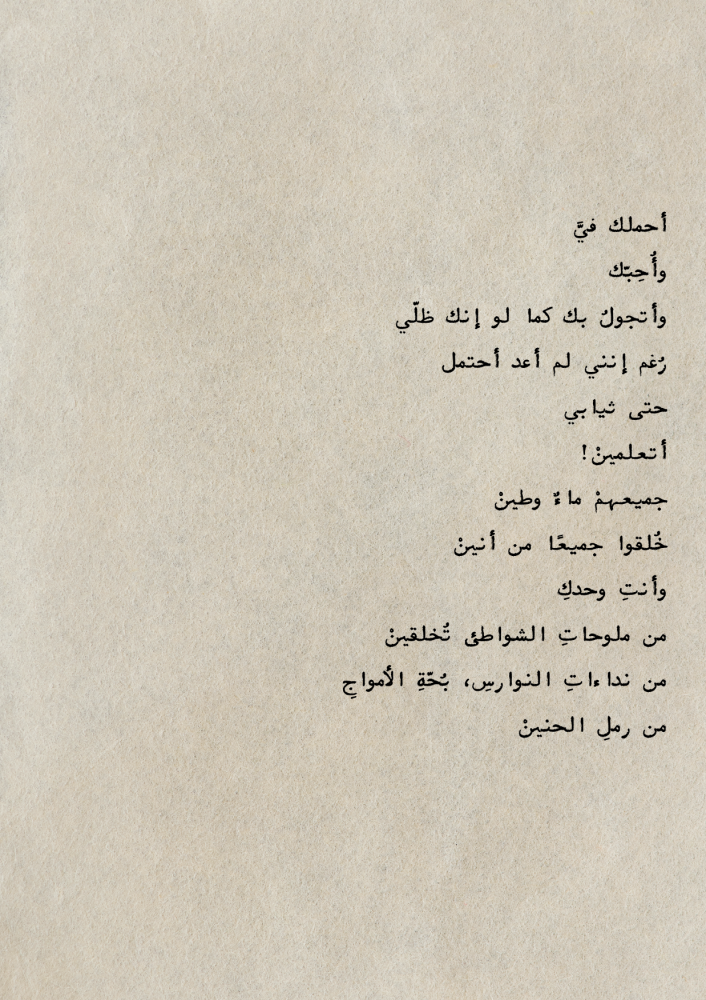 أحملك فيَّ
وأُحِبّك
وأتجولُ بك كما لو إنك ظلّي
رُغم إنني لم أعد أحتمل
حتى ثيابي
أتعلمينْ!
جميعهمْ ماءٌ وطينْ
خُلقوا جميعًا من أنينْ
وأنتِ وحدكِ
من ملوحاتِ الشواطئ تُخلقينْ
من نداءاتِ النوارسِ، بُحّةِ الأمواجِ
من رملِ الحنينْ